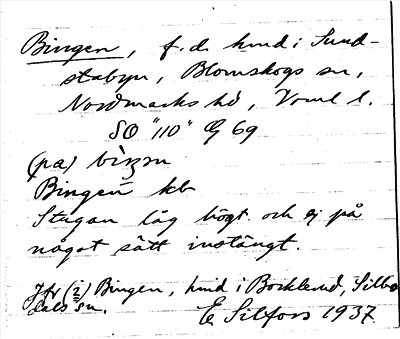 Bingen, f.d. hmd i Sund-
stabyn, Blomskogs sn,
Nordmarks hd, Vrml l.
SO "110" G 69
(pa) bìŋən
Bingen kb
Stugan låg högt och ej på
något sätt instängt.
Jfr (2) Bingen, hmd i Bocklerud, Silbo-
dals sn.
E Silfors 1937